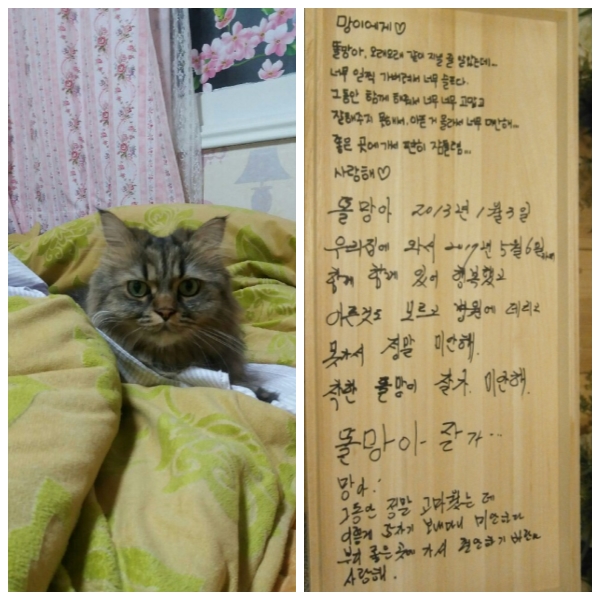 망이에게♡
똘망아, 오래오래 같이 지낼 줄 알았는데..
너무 일찍 가버려서 너무 슬프다.
그동안 함께 해줘서 너무 너무 고맙고
잘해주지 못해서, 아픈 거 몰라서 너무 미안해...
좋은 곳에 가서 편히 잠들렴...
사랑해♡
똘망아 2013년 1월 3일
우리집에 와서 2017년 5월 6일까지
함께 있어 행복했고
아픈것도 모르고 병원에 데리고
못가서 정말 미안해.
착한 똘망이 잘가. 미안해.
똘망아- 잘가..
망아!
그동안 정말 고마웠는데
이렇게 갑자기 보내다니 미안하다
부디 좋은 곳에 가서 편안하기 바란다
사랑해.